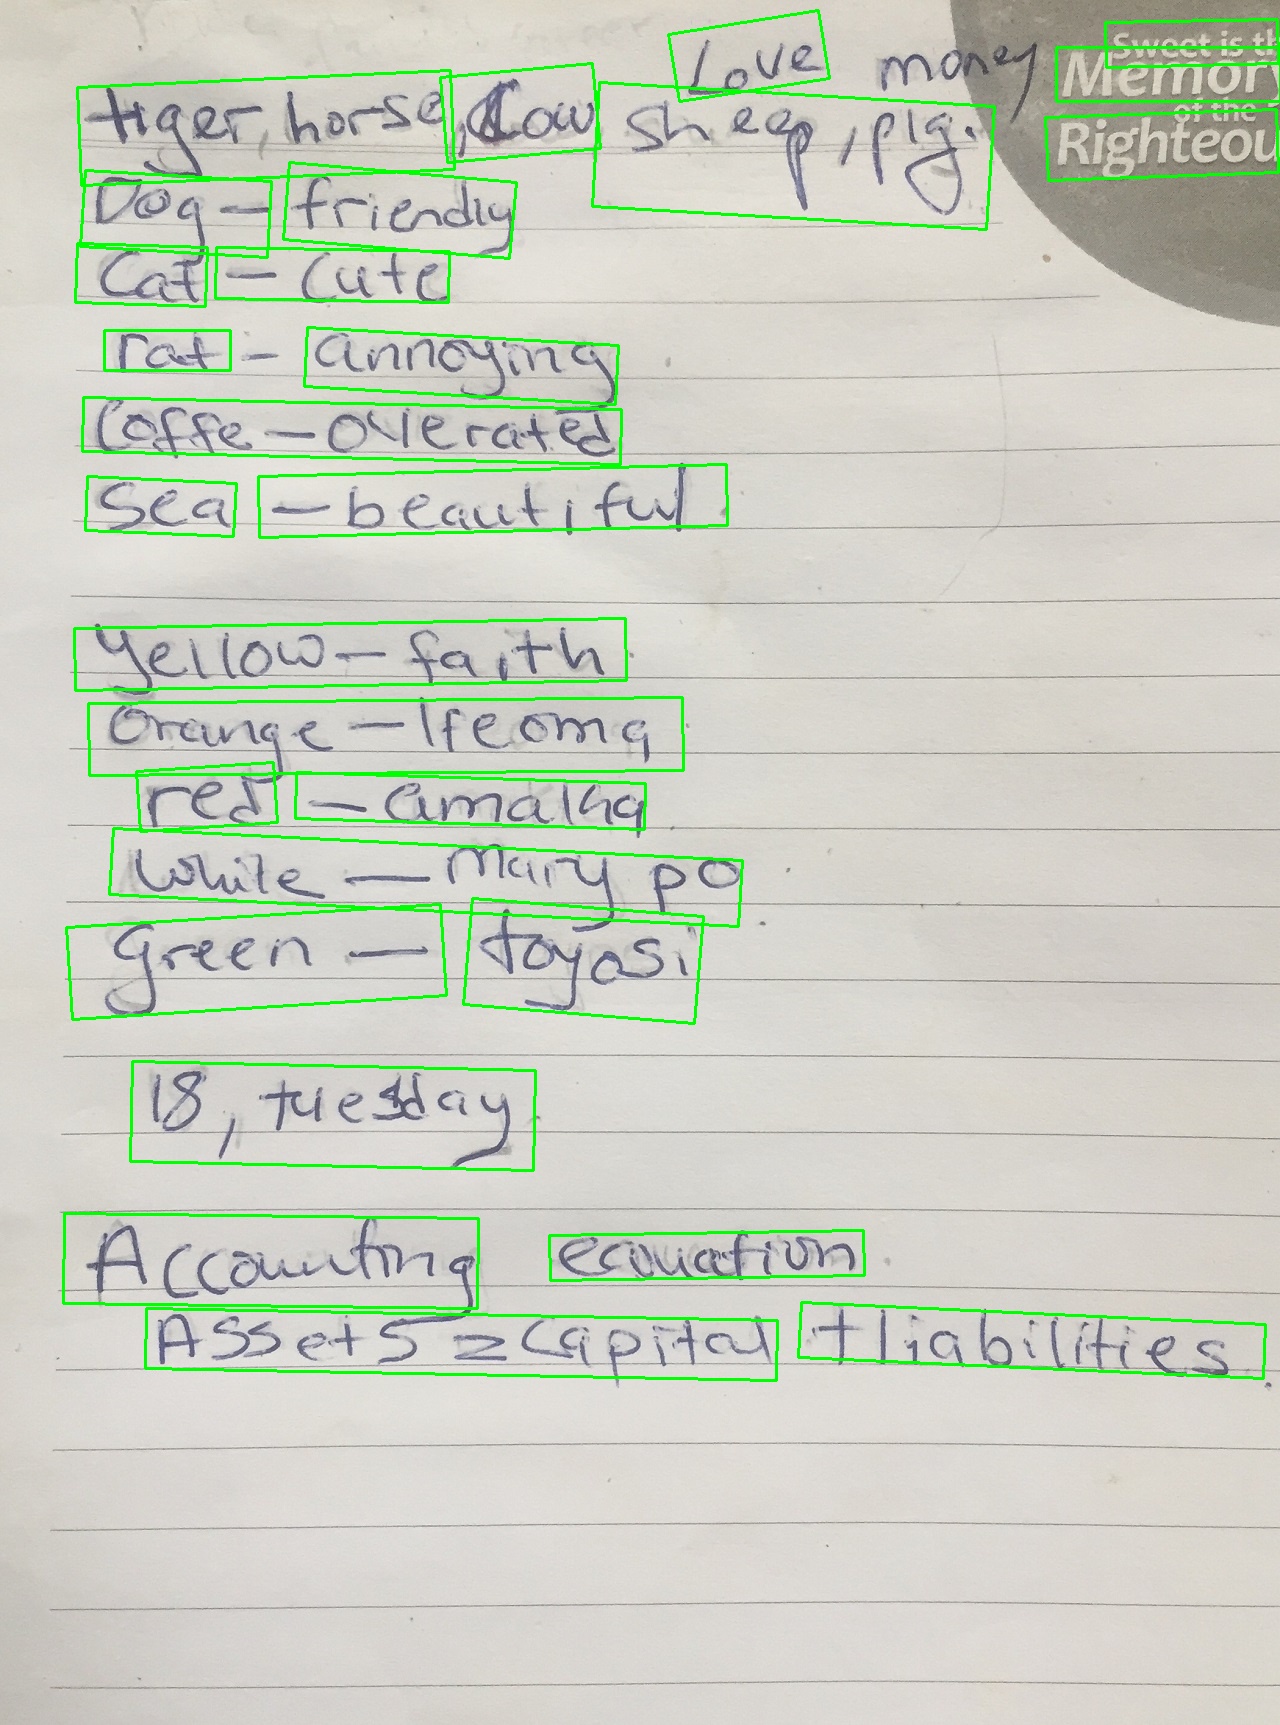 Love money
Sweet is th
Memory
of the
Righteou
tiger, horse, Cow sheep, pig.
Dog - friendly
Cat - cute
rat - annoying
Coffe - overated
Sea - beautiful
Yellow - faith
Orange - Ifeoma
red - amaka
White - Mary po
Green - toyosi
18, tuesday
Accounting equation
Assets = capital + liabilities.